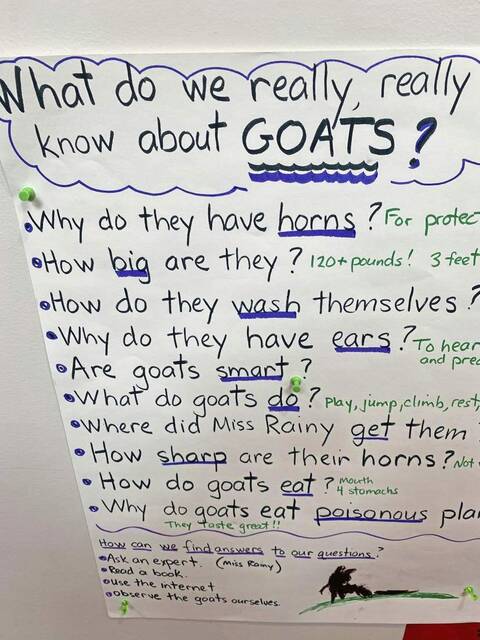 What do we really, really
know about GOATS?
Why do they have horns? For protec
How big are they? 120+ pounds! 3 feet
How do they wash themselves?
Why do they have ears? To hear
and pred
Are goats smart?
What do goats do? Play, jump, climb, rest,
Where did Miss Rainy get them?
How sharp are their horns? Not
How do goats eat? Mouth
4 stomachs
Why do goats eat poisonous pla
They taste great!!
How can we find answers to our questions?
Ask an expert. (Miss Rainy)
Read a book.
use the internet
observe the goats ourselves.